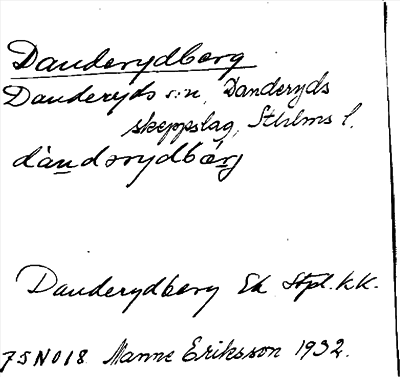 Danderydberg
Danderyds s:n, Danderyds
skeppslag, Sthlms l.
dàndərydbærj
Danderydberg Ek Stpl. kk.
75N018 Manne Eriksson 1932.